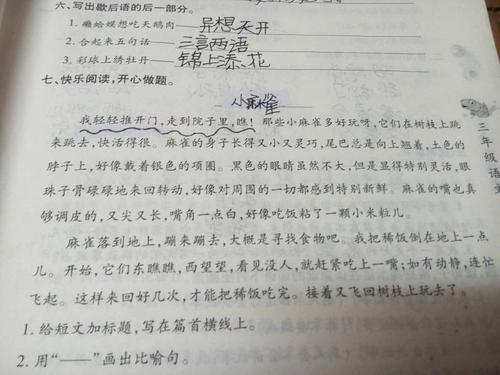 六、写出歇后语的后一部分。
1. 癞蛤蟆想吃天鹅肉—— 异想天开
2. 合起来五句话—— 三言两语
3. 彩球上绣牡丹—— 锦上添花
七、快乐阅读，开心做题。
小麻雀
我轻轻推开门，走到院子里，瞧！那些小麻雀多好玩呀，它们在树枝上跳
来跳去，快活得很。麻雀的身子长得又小又灵巧，尾巴总是向上翘着，土色的
脖子上，好像戴着银色的项圈。黑色的眼睛虽然不大，但是显得特别灵活，眼
珠子骨碌碌地来回转动，好像对周围的一切都感到特别新鲜。麻雀的嘴也真
够调皮的，又尖又长，嘴角一点白，好像吃饭粘了一颗小米粒儿。
麻雀落到地上，蹦来蹦去，大概是寻找食物吧。我把稀饭倒在地上一点
儿。开始，它们东瞧瞧，西望望，看见没人，就赶紧吃上一嘴；如有动静，连忙
飞起。这样来回好几次，才能把稀饭吃完。接着又飞回树枝上玩去了。
1. 给短文加标题，写在篇首横线上。
2. 用“——”画出比喻句。
三年级语文